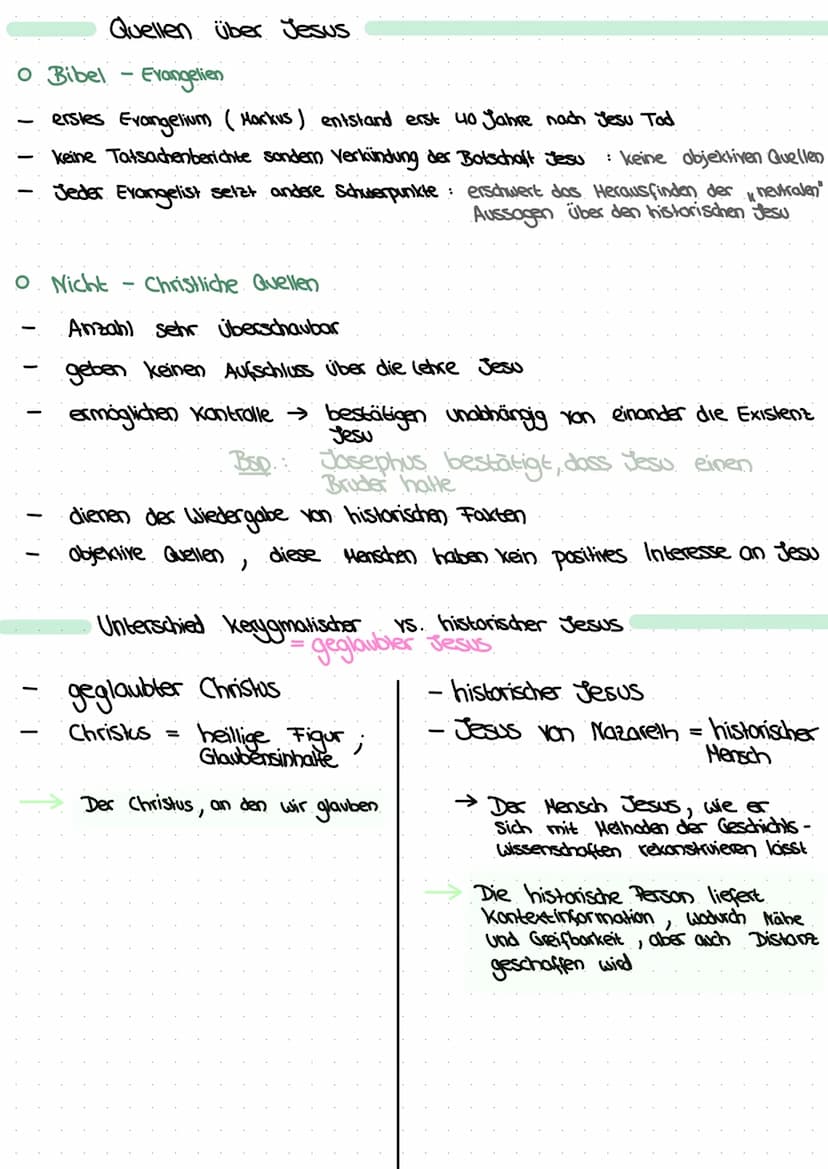 Quellen über Jesus
o Bibel - Evangelien
- erstes Evangelium (Markus) entstand erst 40 Jahre nach Jesu Tod
- keine Tatsachenberichte sondern Verkündung der Botschaft Jesu : keine objektiven Quellen
- Jeder Evangelist setzt andere Schwerpunkte : erschwert das Herausfinden der „neutralen"
Aussagen über den historischen Jesu
o Nicht - Christliche Quellen
- Anzahl sehr überschaubar
- geben keinen Aufschluss über die Lehre Jesu
- ermöglichen Kontrolle → bestätigen unabhängig von einander die Existenz
Jesu
Bsp.: Josephus bestätigt, dass Jesu einen
Bruder hatte
- dienen der Wiedergabe von historischen Fakten
- objektive Quellen, diese Menschen haben kein positives Interesse an Jesu
Unterschied kerygmatischer vs. historischer Jesus
= geglaubter Jesus
- geglaubter Christus
- Christus = heillige Figur ;
Glaubensinhalte
→ Der Christus, an den wir glauben
- historischer Jesus
- Jesus von Nazareth = historischer
Mensch
→ Der Mensch Jesus, wie er
sich mit Methoden der Geschichts-
wissenschaften rekonstruieren lässt
→ Die historische Person liefert
Kontextinformation, wodurch Nähe
und Greifbarkeit, aber auch Distanz
geschaffen wird